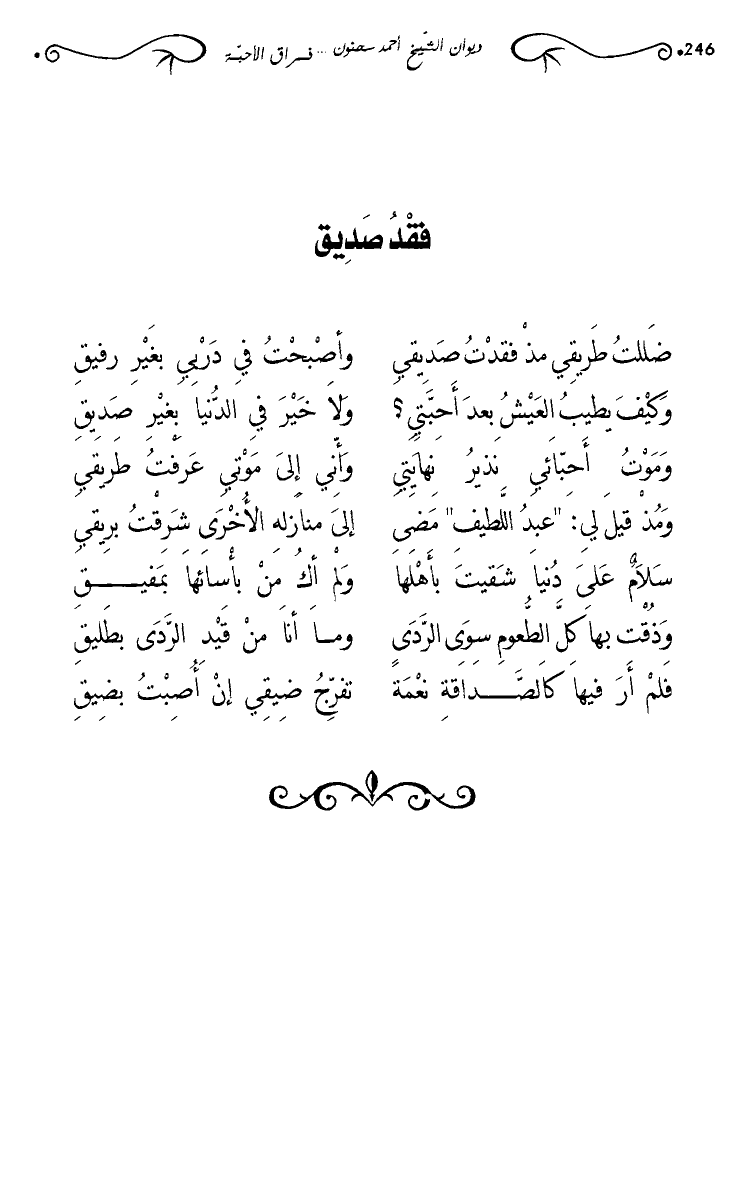 246 ديوان الشّيخ أحمد سحنون ... فراق الأحبّة
فقْدُ صَدِيق
ضَللتُ طَرِيقِي مذْ فقدْتُ صَدِيقِي وأصْبحْتُ فِي دَرْبِي بغَيْرِ رفيقِ
وَكَيْفَ يطيبُ العَيْشُ بعدَ أَحِبَّتِي؟ وَلاَ خَيْرَ فِي الدُّنيا بِغَيْرِ صَدِيقِ
وَمَوْتُ أَحِبّائي نذيرُ نِهايَتِي وَأَنِّي إِلىَ مَوْتِي عَرَفْتُ طَرِيقي
وَمُذْ قيل لي: "عبدُ اللَّطيف" مَضَى إلىَ منازله الأُخْرَى شَرِقْتُ بِرِيقي
سَلاَمٌ عَلىَ دُنيا شَقيتَ بأَهْلها وَلَمْ أكُ مَنْ بأْسائها بمَفيـــــق
وَذُقْت بها كلَّ الطُّعومِ سوَى الرَّدَى ومــا أنا منْ قَيْدِ الرَّدَى بطَليقِ
فلمْ أرَ فيها كالصَّـــداقةِ نعْمَة تفرّجُ ضيقِي إنْ أُصِبْتُ بضِيقِ